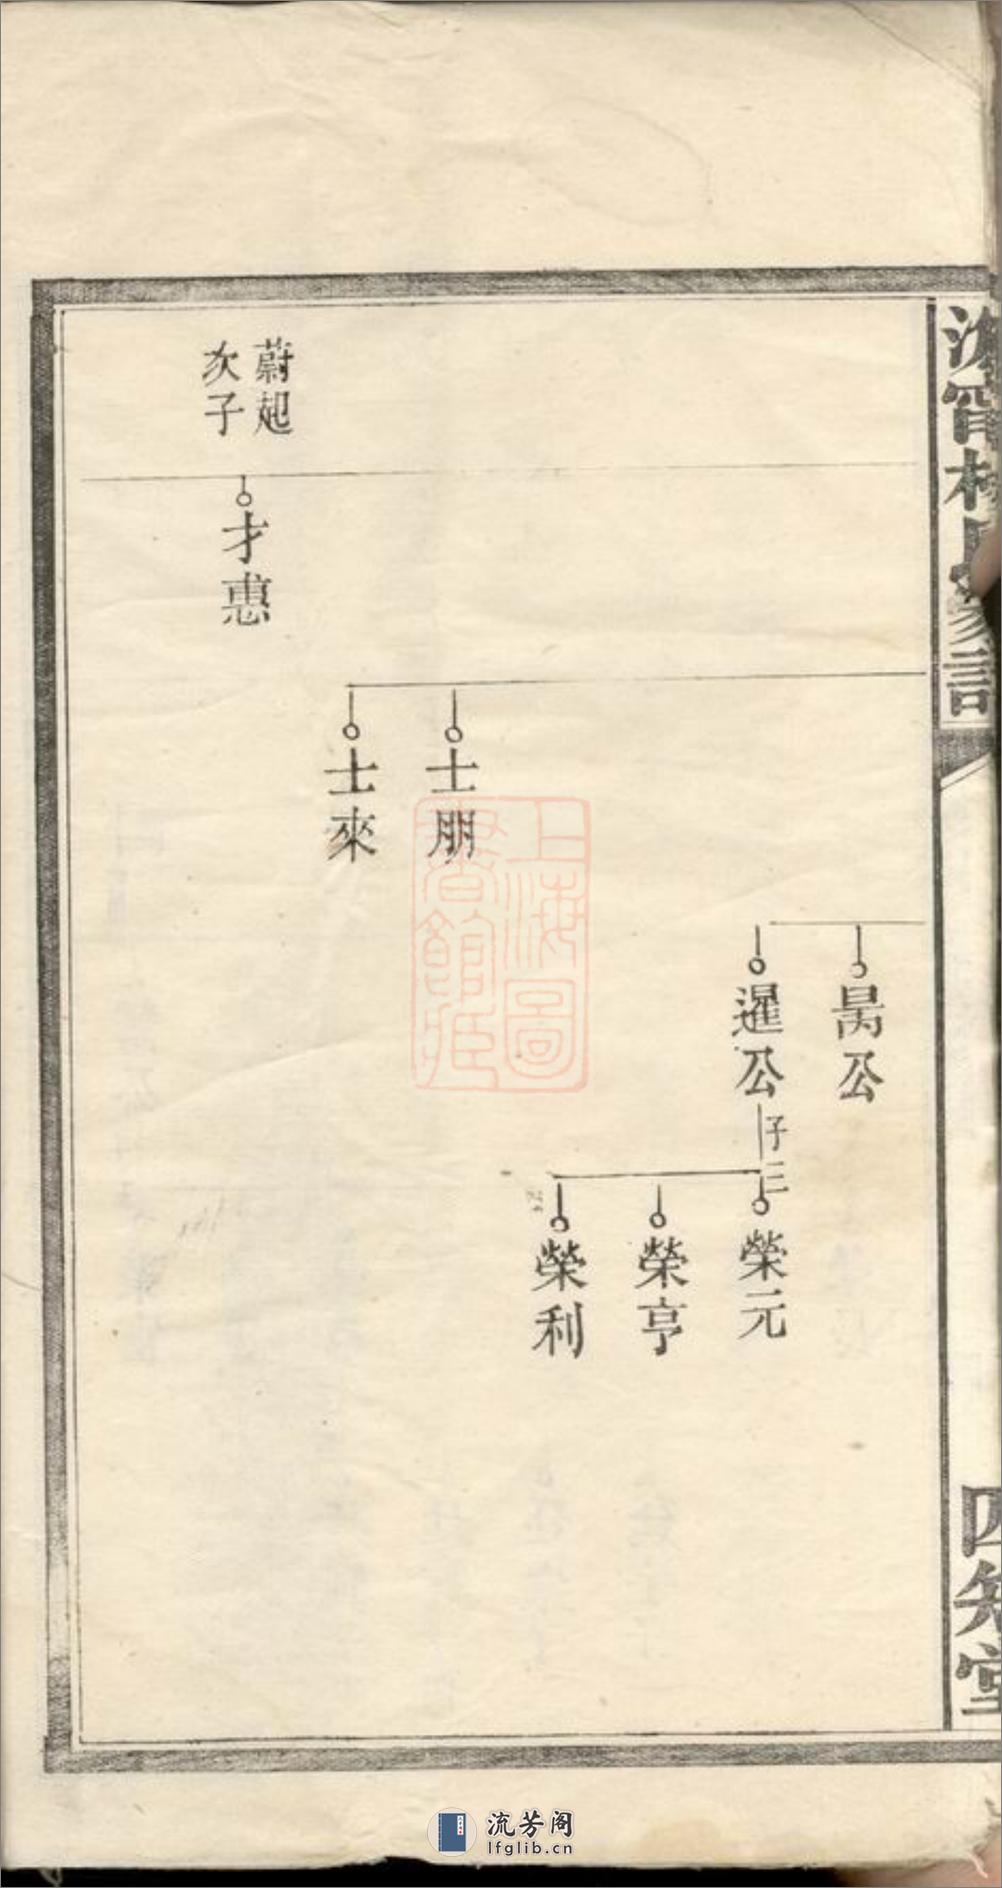 甯楊氏家譜
四知堂
公
暹公
子三
榮元
榮亨
榮利
士朋
士來
蔚起
次子
才惠
上海圖
書館藏
流芳阁
lfglib.cn